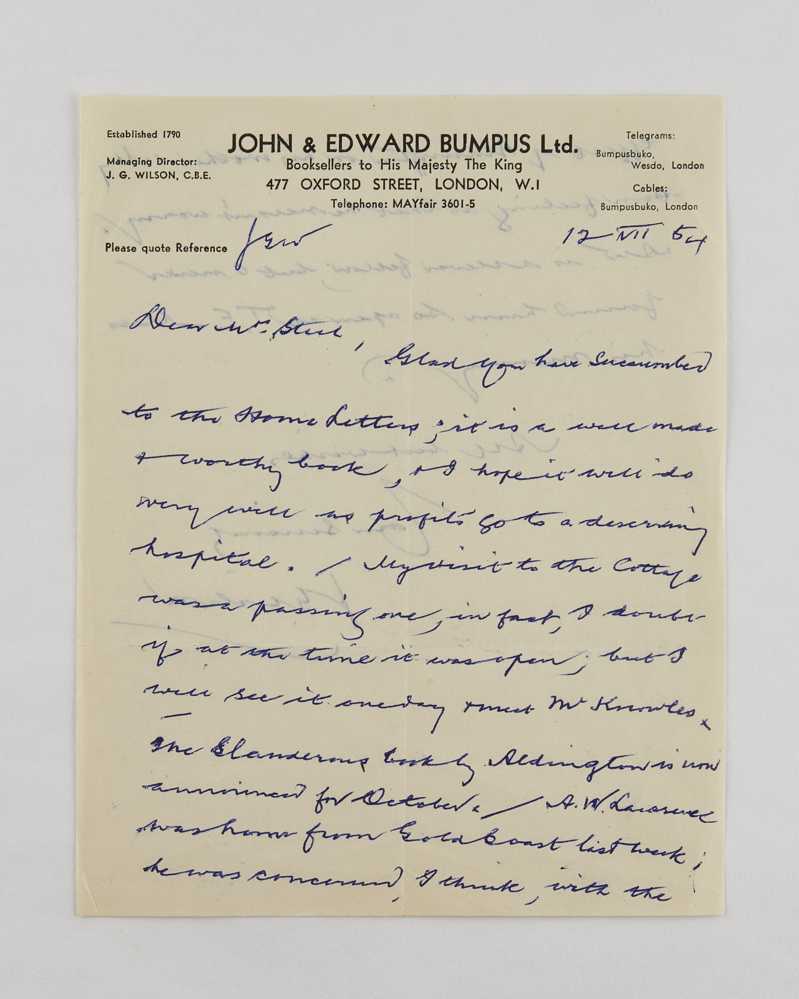 Established 1790
Managing Director:
J. G. WILSON, C.B.E.
JOHN & EDWARD BUMPUS Ltd.
Booksellers to His Majesty The King
477 OXFORD STREET, LONDON, W.1
Telephone: MAYfair 3601-5
Telegrams:
Bumpusbuko,
Wesdo, London
Cables:
Bumpusbuko, London
Please quote Reference JGW
12 VII 54
Dear Mrs. Steel,
Glad you have succumbed
to the Home Letters; it is a well made
& worthy book, & I hope it will do
very well as profits go to a deserving
hospital. / My visit to the Cottage
was a passing one, in fact, I doubt
if at the time it was open; but I
will see it one day & meet Mr Knowles.
The Slanderous book by Aldington is now
announced for October. / A. W. Lawrence
was home from Gold Coast last week;
he was concerned, I think, with the